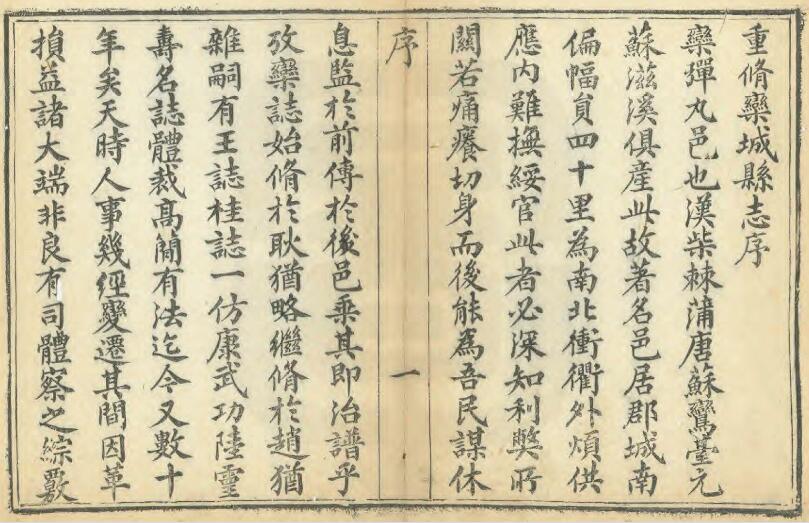 重脩欒城縣志序
欒彈丸邑也漢柴棘蒲唐蘇鸞臺元
蘇滋溪俱産此故著名邑居郡城南
偏幅員四十里為南北衝衢外煩供
應内難撫綏官此者必深知利獘所
關若痛癢切身而後能為吾民謀休
序
一
息監於前傳於後邑乘其即治譜乎
攷欒誌始脩於耿猶略繼脩於趙猶
雜嗣有王誌桂誌一仿康武功陸靈
壽名誌體裁髙簡有法迄今又數十
年矣天時人事幾經變遷其間因革
損益諸大端非良有司體察之綜覈